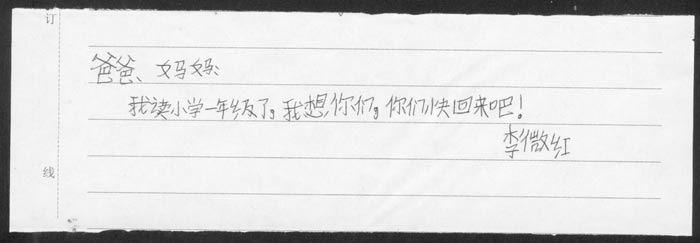 订
爸爸、妈妈:
我读小学一年级了。我想你们。你们快回来吧!
李微红
线